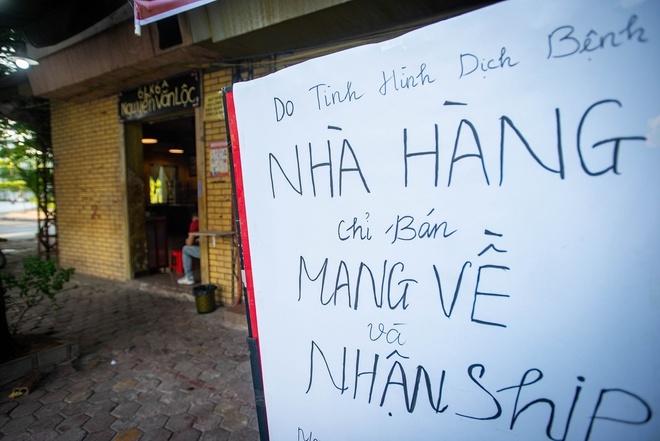 64K6
Nguyễn Văn Lộc
Do Tình Hình Dịch Bệnh
NHÀ HÀNG
chỉ Bán
MANG VỀ
và
NHẬN Ship